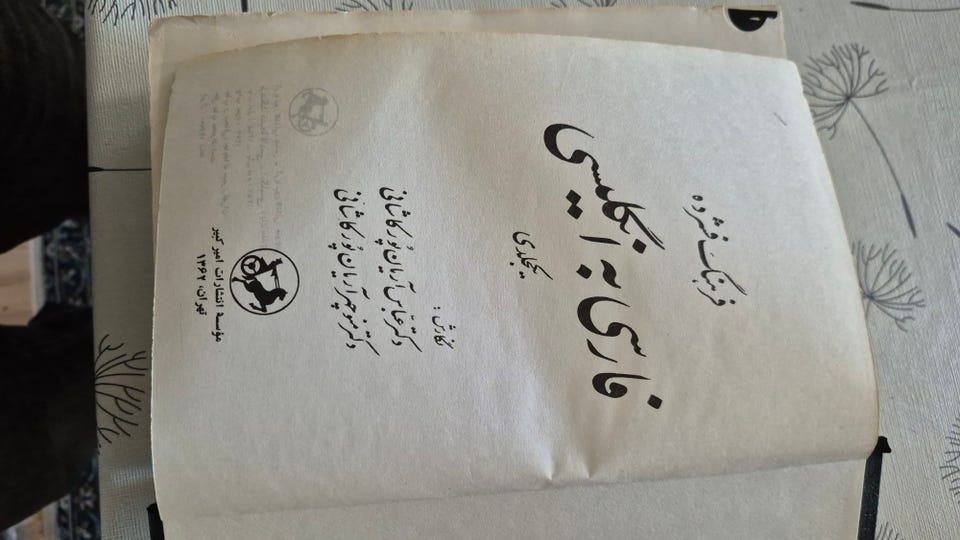 فرهنگ فشرده
فارسی به انگلیسی
یکجلدی
نگارش :
دکتر عباس آریان پُور کاشانی
دکتر منوچهر آریان پُور کاشانی
مؤسسهٔ انتشارات امیر کبیر
تهران، ۱۳۶۲